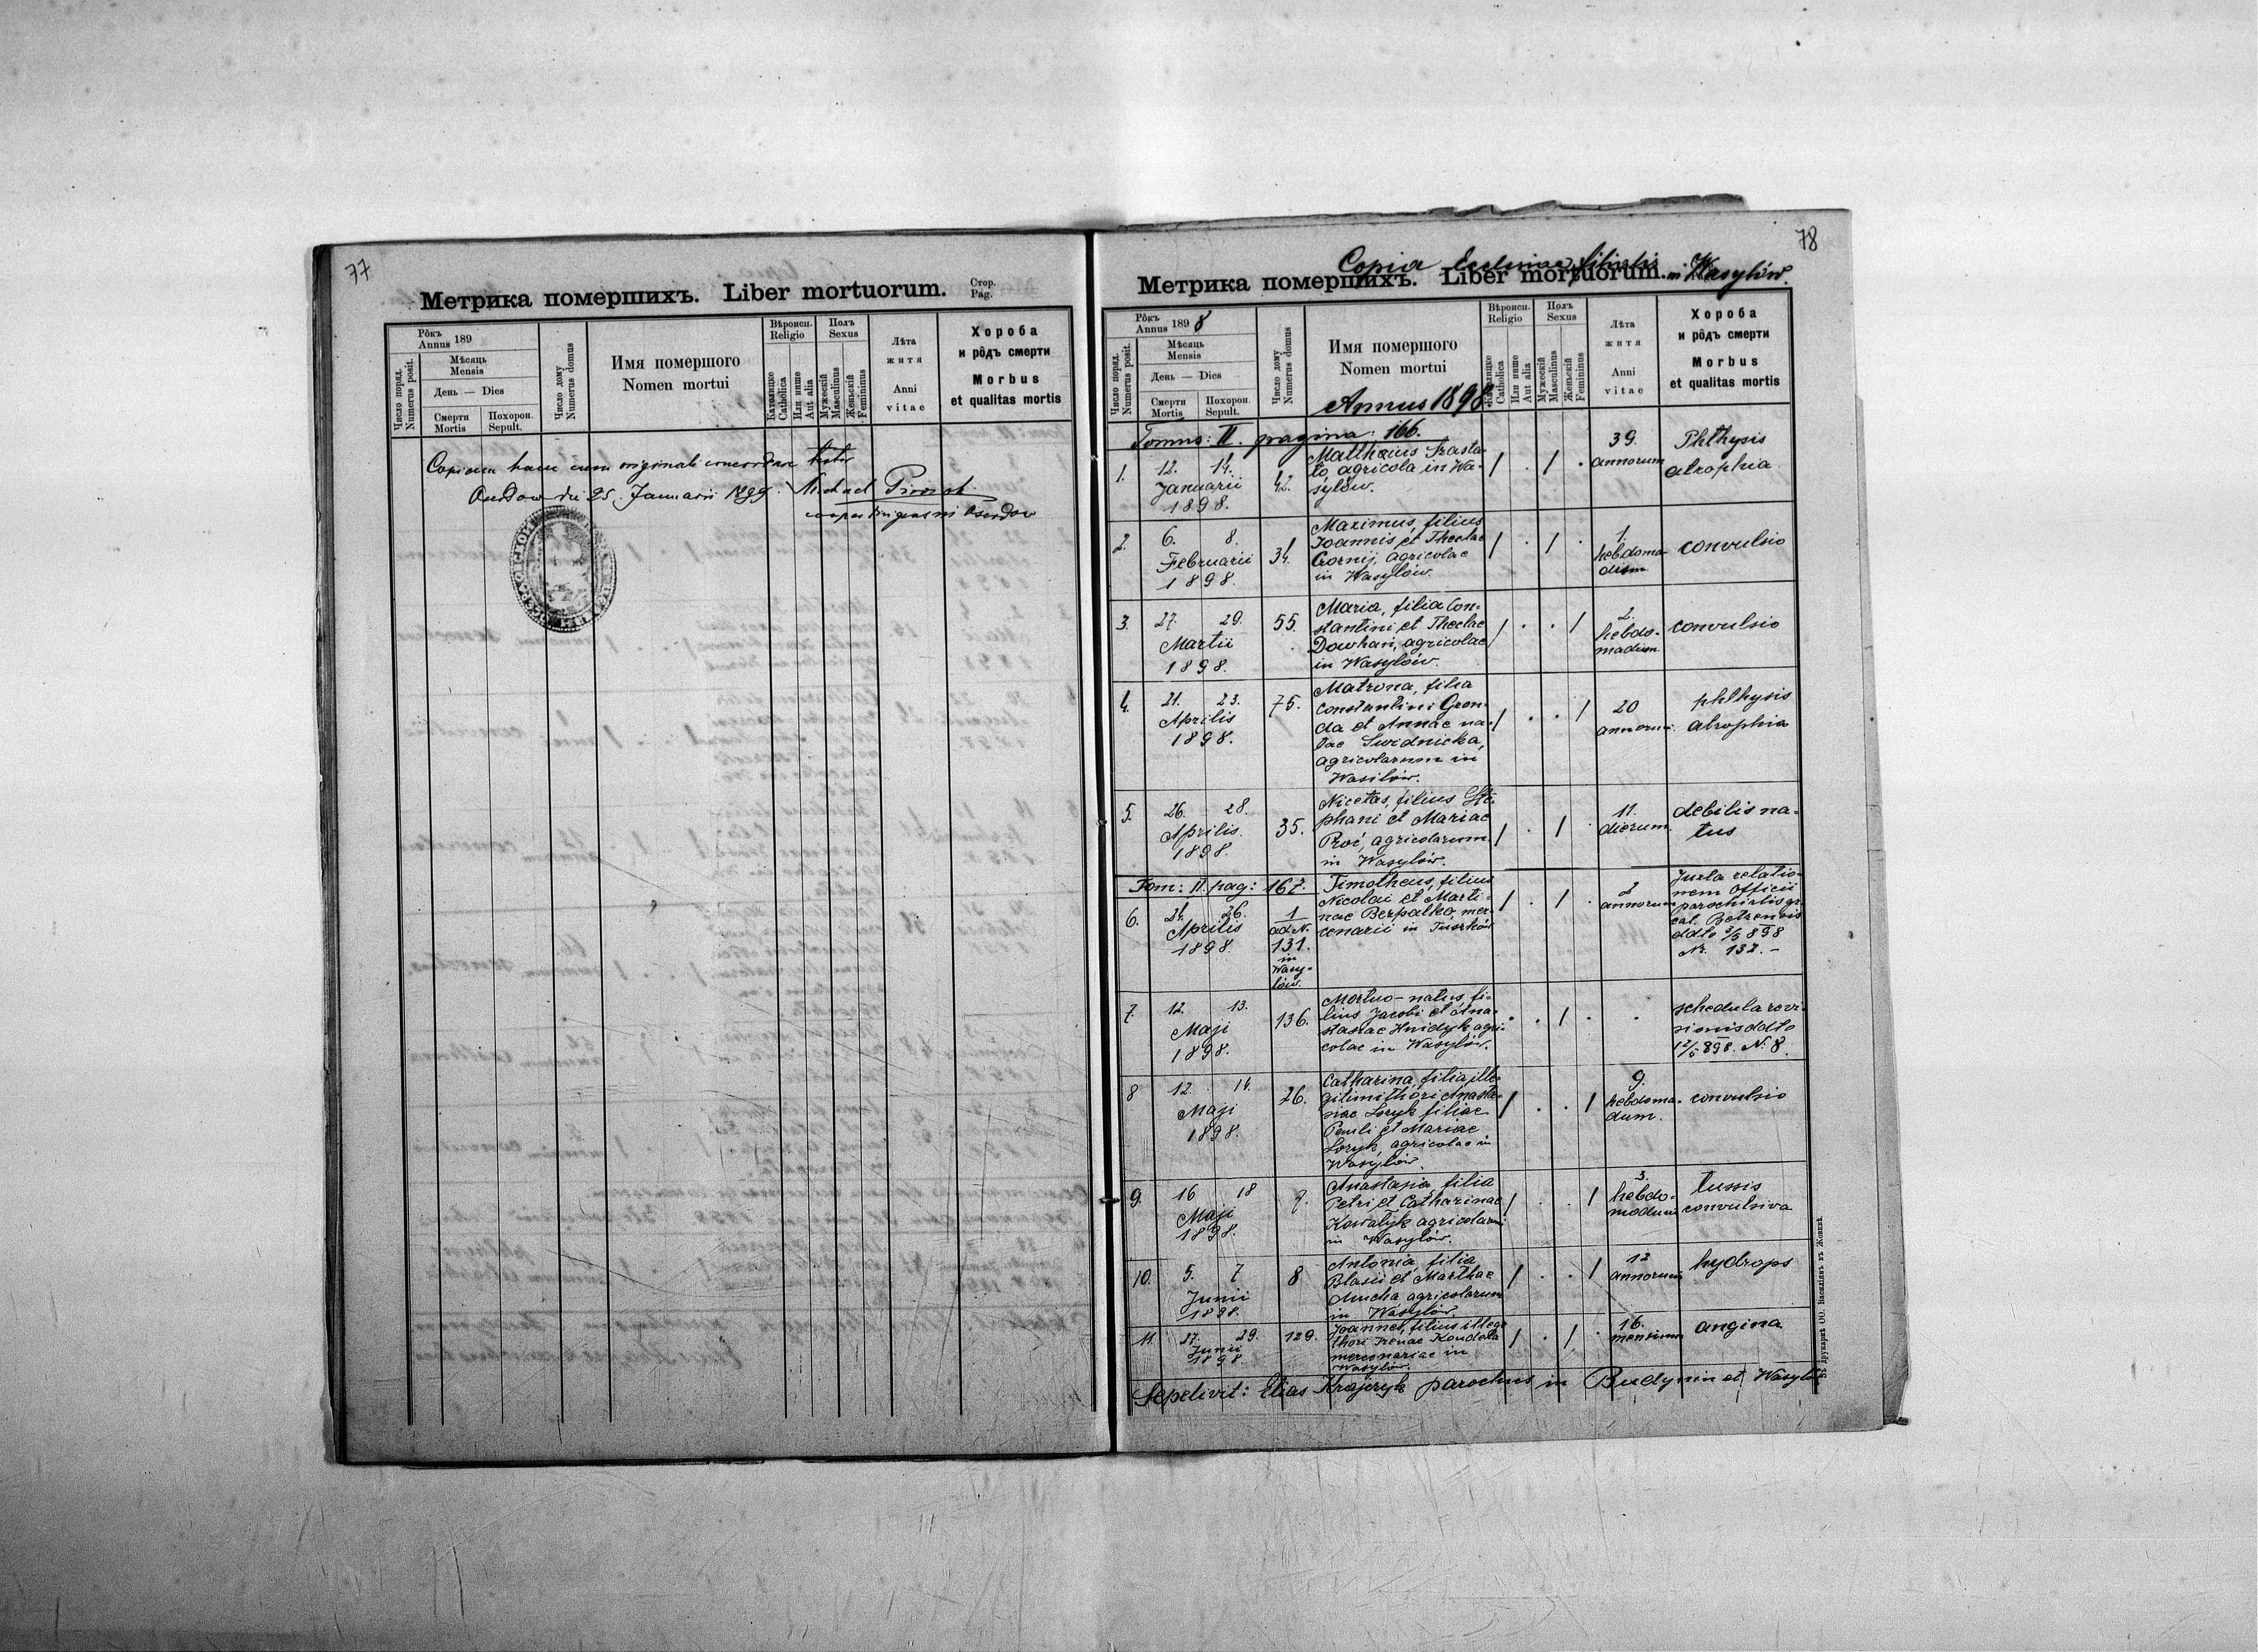 77
Метрика помершихъ. Liber mortuorum.
Стор.
Pag.
Число поряд.
Numerus posit.
Рôкъ
Annus 189
Мѣсяць
Mensis
День — Dies
Смерти
Mortis
Похорон.
Sepult.
Число дому
Numerus domus
Имя помершого
Nomen mortui
Вѣроисп.
Religio
Католицке
Catholica
Или инше
Aut alia
Полъ
Sexus
Мужескій
Masculinus
Женьскій
Femininus
Лѣта
житя
Anni
vitae
Хороба
и рôдъ смерти
Morbus
et qualitas mortis
Copiam hanc cum originali concordare testor
die 25. Januarii 1899. Michael
78
Copia Ecclesiae filialis in Wasylów.
Метрика помершихъ. Liber mortuorum.
Число поряд.
Numerus posit.
Рôкъ
Annus 1898
Мѣсяць
Mensis
День — Dies
Смерти
Mortis
Похорон.
Sepult.
Число дому
Numerus domus
Имя помершого
Nomen mortui
Annus 1898
Вѣроисп.
Religio
Католицке
Catholica
Или инше
Aut alia
Полъ
Sexus
Мужескій
Masculinus
Женьскій
Femininus
Лѣта
житя
Anni
vitae
Хороба
и рôдъ смерти
Morbus
et qualitas mortis
Tomus: II. pagina: 166.
1. 12. 14.
Januarii
1898.
42.
Matthaeus Trasta-
to, agricola in Wa-
sylów.
39.
annorum
Phthysis
atrophia
2. 6. 8.
Februarii
1898.
34.
Maximus, filius
Joannis et Theclae
Czornij, agricolae
in Wasylów.
1.
hebdoma-
dum
convulsio
3. 27. 29.
Martii
1898.
55.
Maria, filia Con-
stantini et Theclae
Dowhan, agricolae
in Wasylów.
2.
hebdo-
madum
convulsio
4. 21. 23.
Aprilis
1898.
75.
Matrona, filia
Constantini Gron-
da et Annae na-
tae Swidnicka,
agricolarum in
Wasilów.
20
annorum
phthysis
atrophia
5. 26. 28.
Aprilis.
1898.
35.
Nicetas, filius Ste-
phani et Mariae
Proć, agricolarum
in Wasylów.
11.
dierum.
debilis na-
tus
Tom: II. pag: 167.
6. 24. 26.
Aprilis
1898.
1
ad N.
131.
in
Wasy-
lów.
Timotheus, filius
Nicolai et Marti-
nae Berpalko, mer-
cenarii in Tuszków
2
annorum
Juxta relatio-
nem Officii
parochialis gr.
cat. Belzensis
ddto 3/5 898
Nr. 132. –
7. 12. 13.
Maji
1898.
136.
Mortuo-natus, fi-
lius Jacobi et Ana-
stasiae Hnidyk, agri-
colae in Wasylów.
schedula revi-
sionis ddto
12/5 898. N. 8.
8 12 14.
Maji
1898.
26.
Catharina, filia ille-
gitimi thori Anasta-
siae Loryk filiae
Pauli et Mariae
Loryk, agricolae in
Wasylów.
9.
hebdoma-
dum.
convulsio
9. 16 18
Maji
1898.
7.
Anastasia filia
Petri et Catharinae
Kowalyk agricolarum
in Wasylów.
3.
hebdo-
madum
tussis
convulsiva
10. 5. 7
Junii
1898.
8
Antonia, filia
Blasii et Marthae
Mucha agricolarum
in Wasylów.
12
annorum
hydrops
11. 27. 29.
Junii
1898
129.
Joannes, filius illeg.
thori Irenae Koudela
mercenariae in
Wasylów.
16.
mensium
angina
Sepelivit: Elias Krajczyk parochus in Budynin et Wasylów
Въ друкарнѣ ОО. Василіянъ въ Жовквѣ.